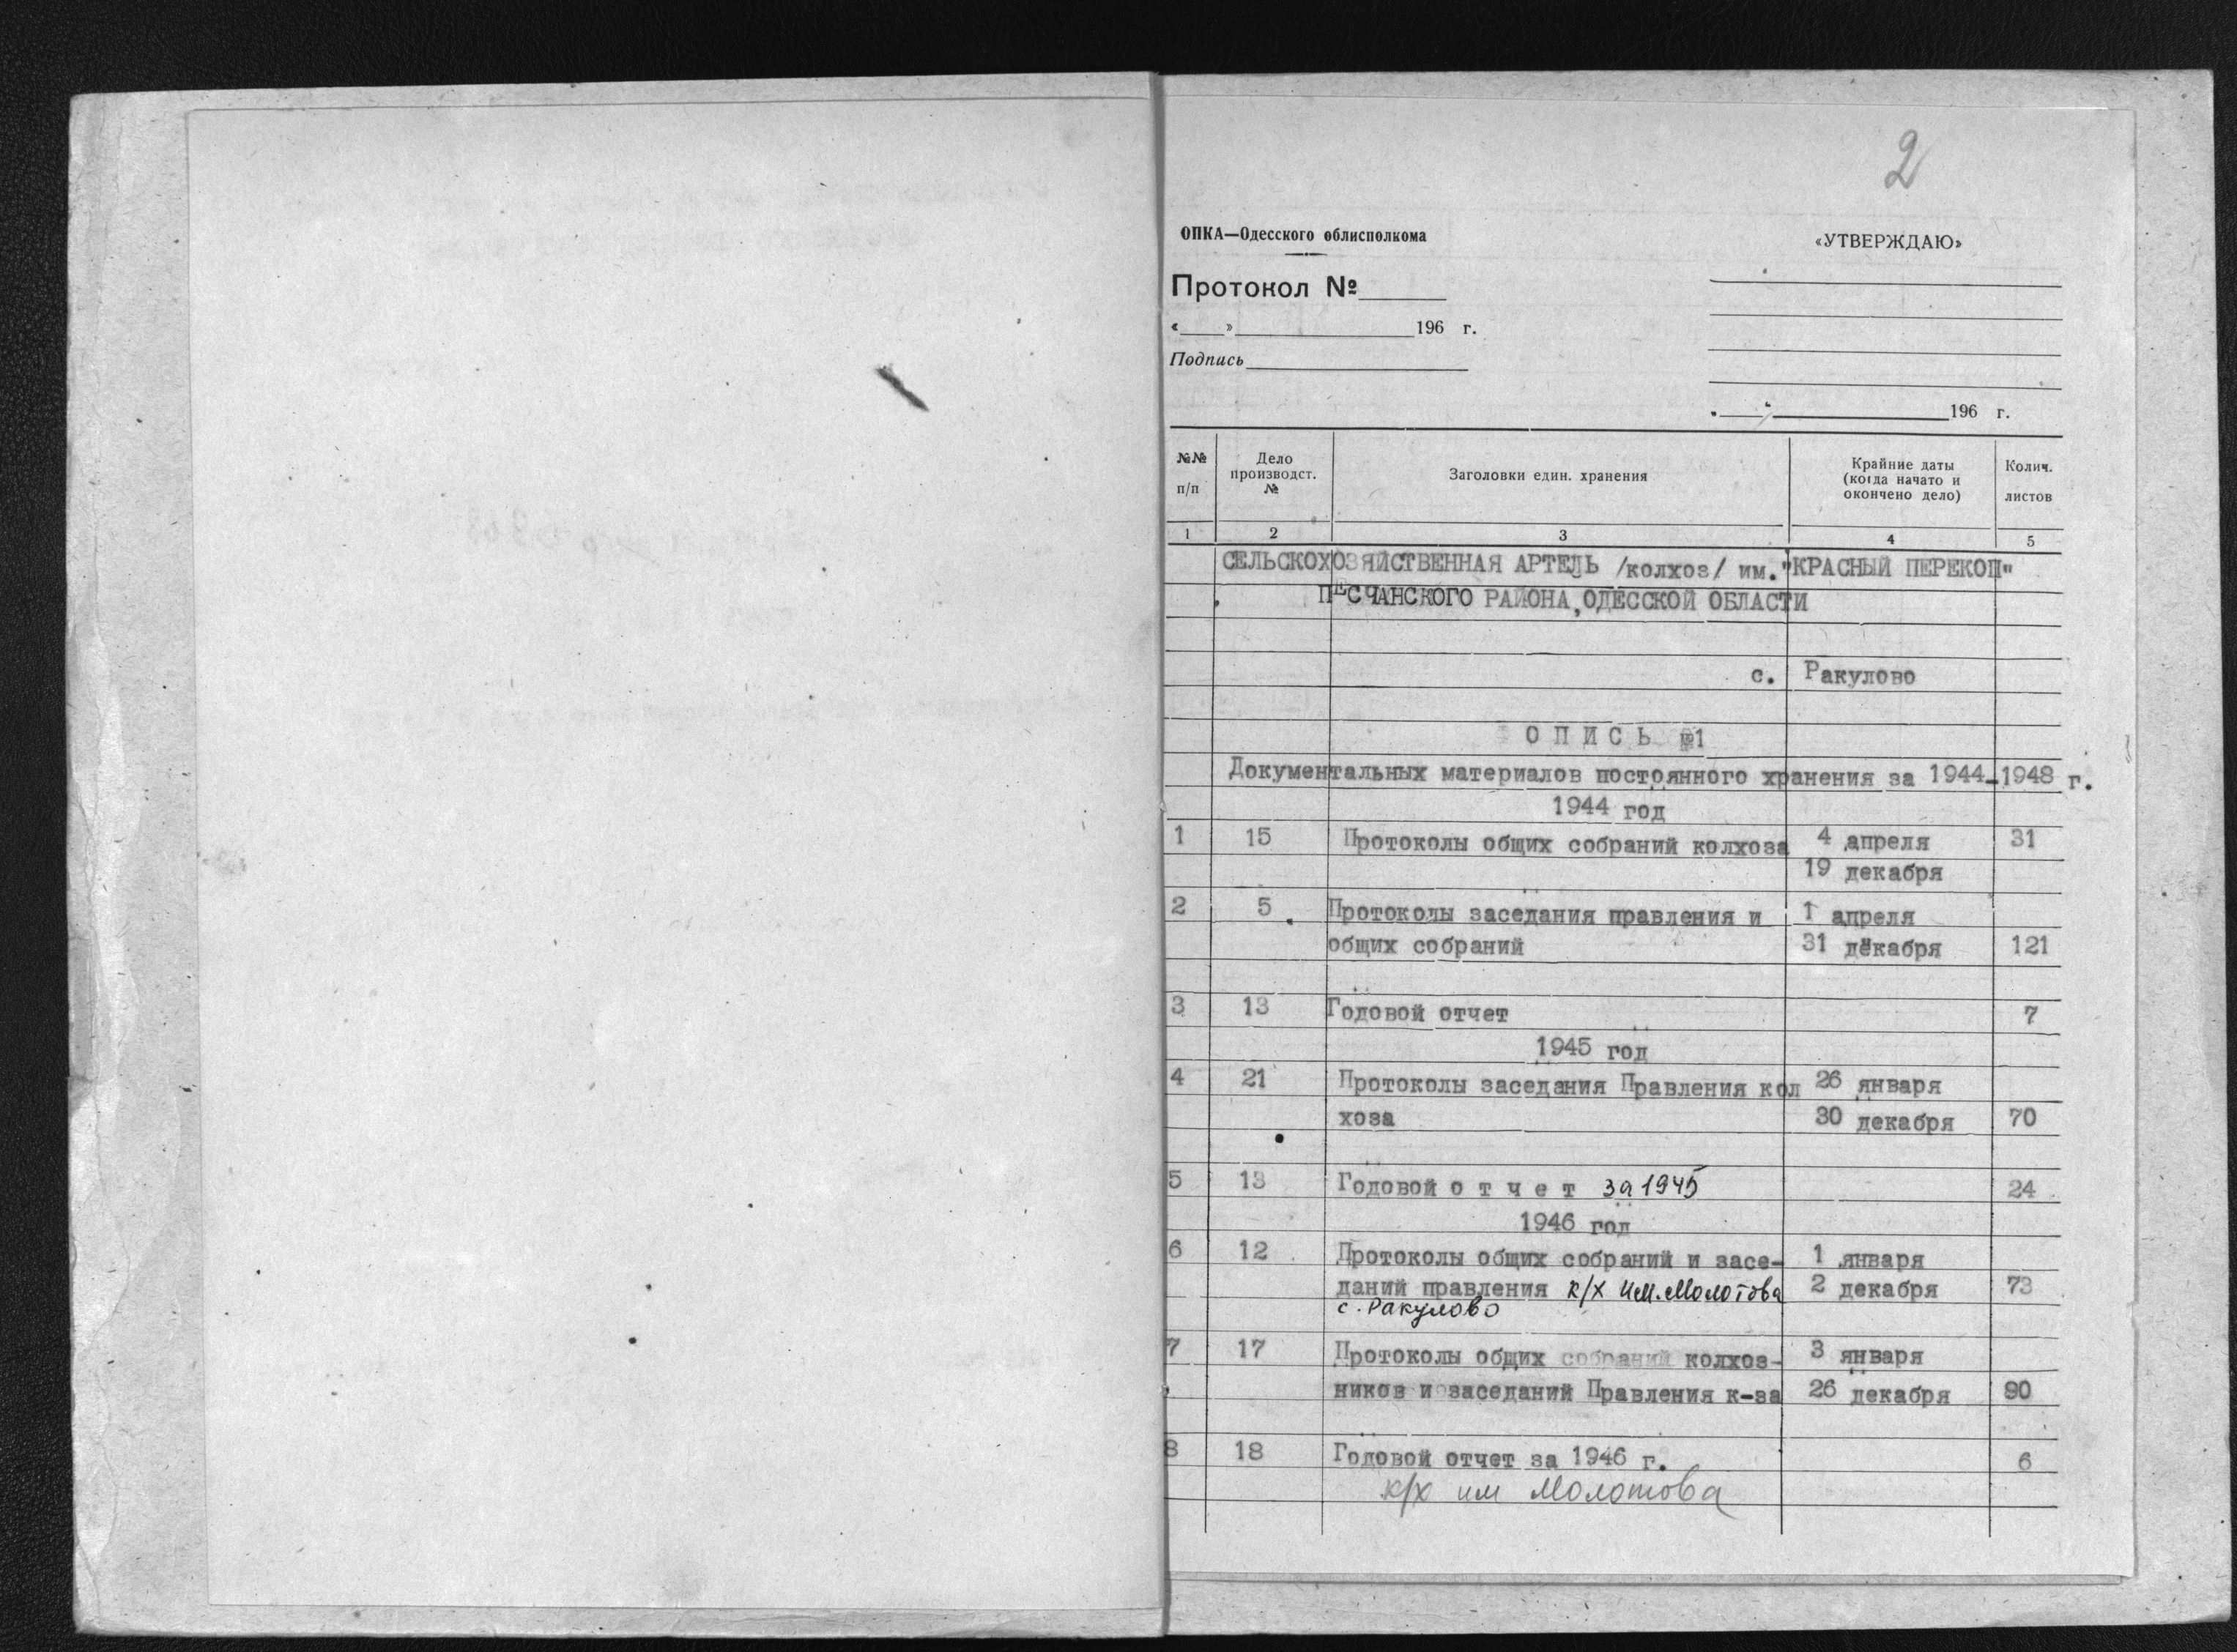 2
ОПКА—Одесского облисполкома
«УТВЕРЖДАЮ»
Протокол №
« » 196 г.
Подпись
196 г.
№№ п/п
Дело производст. №
Заголовки един. хранения
Крайние даты (когда начато и окончено дело)
Колич. листов
1 2 3 4 5
СЕЛЬСКОХОЗЯЙСТВЕННАЯ АРТЕЛЬ /колхоз/ им."КРАСНЫЙ ПЕРЕКОП"
ПЕСЧАНСКОГО РАЙОНА,ОДЕССКОЙ ОБЛАСТИ
с. Ракулово
О П И С Ь №1
Документальных материалов постоянного хранения за 1944-1948 г.
1944 год
1 15 Протоколы общих собраний колхоза 4 апреля 31
19 декабря
2 5 Протоколы заседания правления и 1 апреля
общих собраний 31 декабря 121
3 13 Годовой отчет 7
1945 год
4 21 Протоколы заседания Правления кол 26 января
хоза 30 декабря 70
5 13 Годовой о т ч е т за 1945 24
1946 год
6 12 Протоколы общих собраний и засе- 1 января
даний правления к/х им. Молотова 2 декабря 73
с. Ракулово
7 17 Протоколы общих собраний колхоз- 3 января
ников и заседаний Правления к-за 26 декабря 90
8 18 Годовой отчет за 1946 г. 6
к/х им Молотова